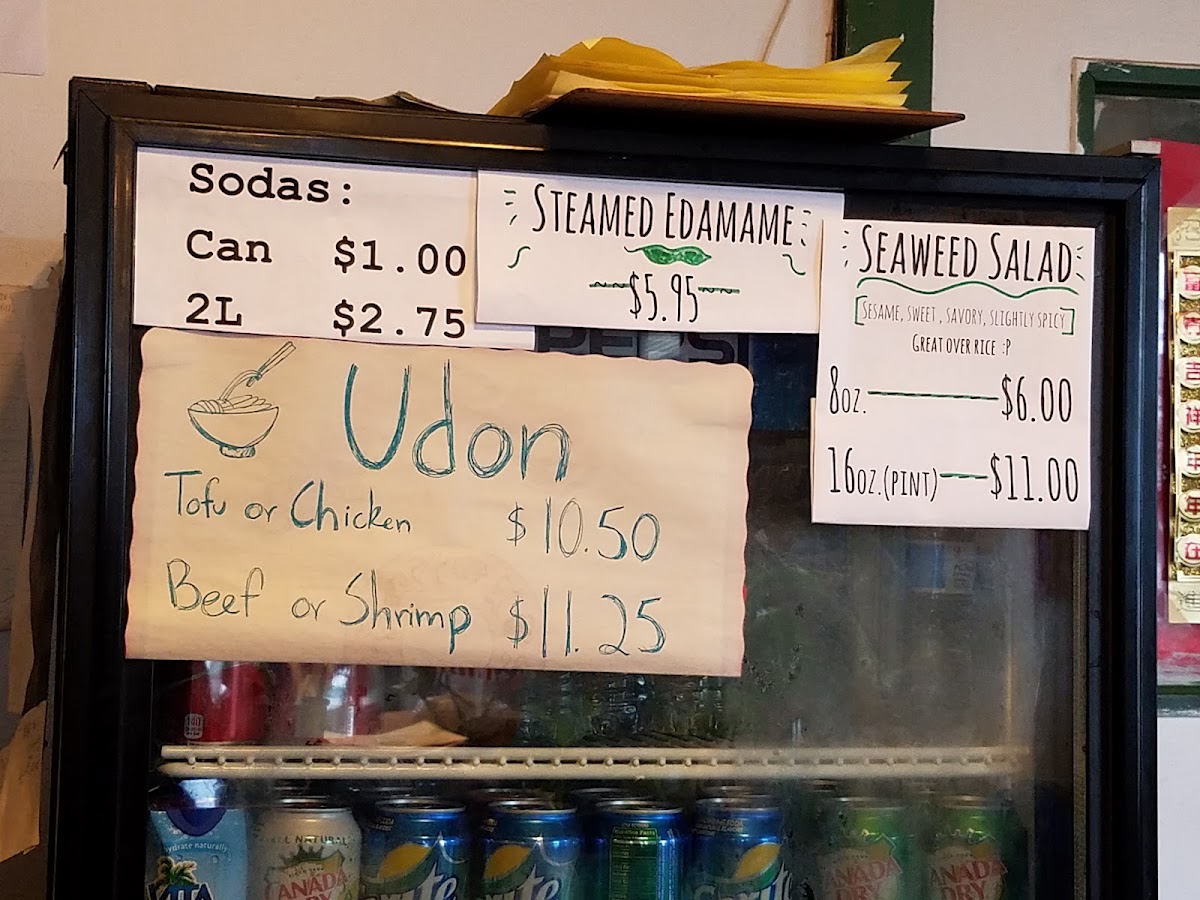 Sodas:
Can $1.00
2L $2.75
STEAMED EDAMAME
$5.95
SEAWEED SALAD
[SESAME, SWEET, SAVORY, SLIGHTLY SPICY]
GREAT OVER RICE :P
8oz. $6.00
16oz. (PINT) $11.00
PEPSI
Udon
Tofu or Chicken $10.50
Beef or Shrimp $11.25
富
吉
祥
年
在
hydrate naturally
VITA
ALL NATURAL
CANADA
DRY
Sprite
Sprite
Nutrition Facts
Sprite
CANADA
DRY
CANADA
DRY